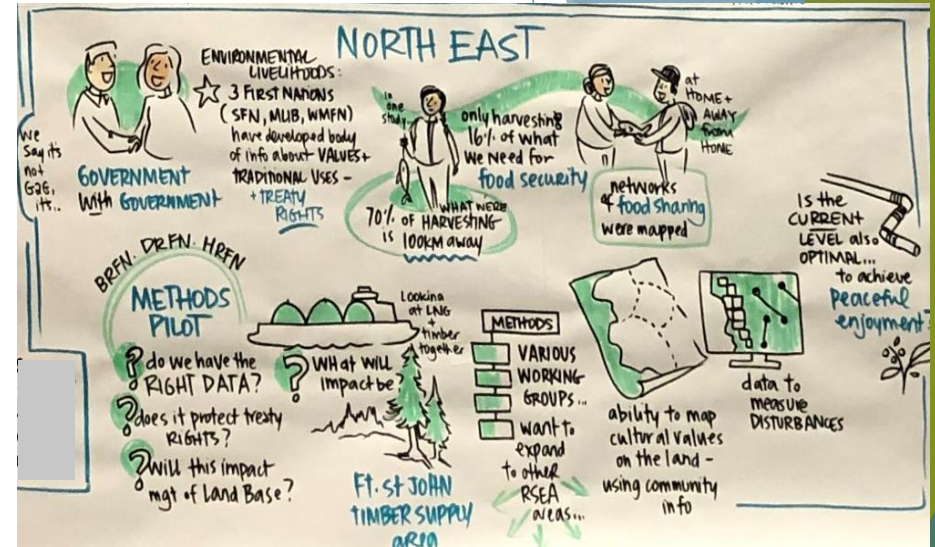 NORTH EAST
we
say it's
not
G2G,
it's..
GOVERNMENT
with GOVERNMENT
ENVIRONMENTAL
LIVELIHOODS:
3 FIRST NATIONS
(SFN, MLIB, WMFN)
have developed body
of info about VALUES +
TRADITIONAL USES -
+ TREATY
RIGHTS
in
one
study..
only harvesting
16% of what
we need for
food security
WHAT WERE
70% of HARVESTING
is 100KM away
at
HOME +
AWAY
from
HOME
networks
of food sharing
were mapped
Is the
CURRENT
LEVEL also
OPTIMAL...
to achieve
peaceful
enjoyment?
BRFN. DRFN. HRFN
METHODS
PILOT
? do we have the
RIGHT DATA?
? does it protect treaty
RIGHTS?
? will this impact
mgt of Land Base?
Looking
at LNG
+
timber
together
? WHAT WILL
impact be?
Ft. St JOHN
TIMBER SUPPLY
area
METHODS
VARIOUS
WORKING
GROUPS...
want to
expand
to other
RSEA
areas...
ability to map
cultural values
on the land -
using community
info
data to
measure
DISTURBANCES